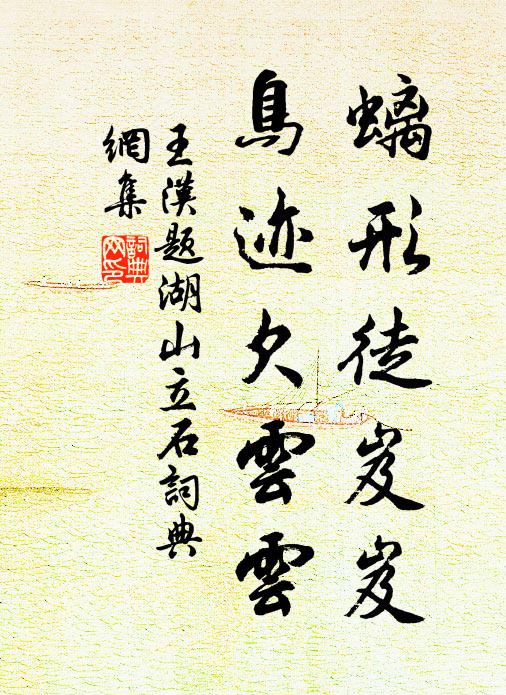 螭形徒岌岌
鳥迹欠雲雲
王漢题湖山立石詞典
網集
詞典
网印